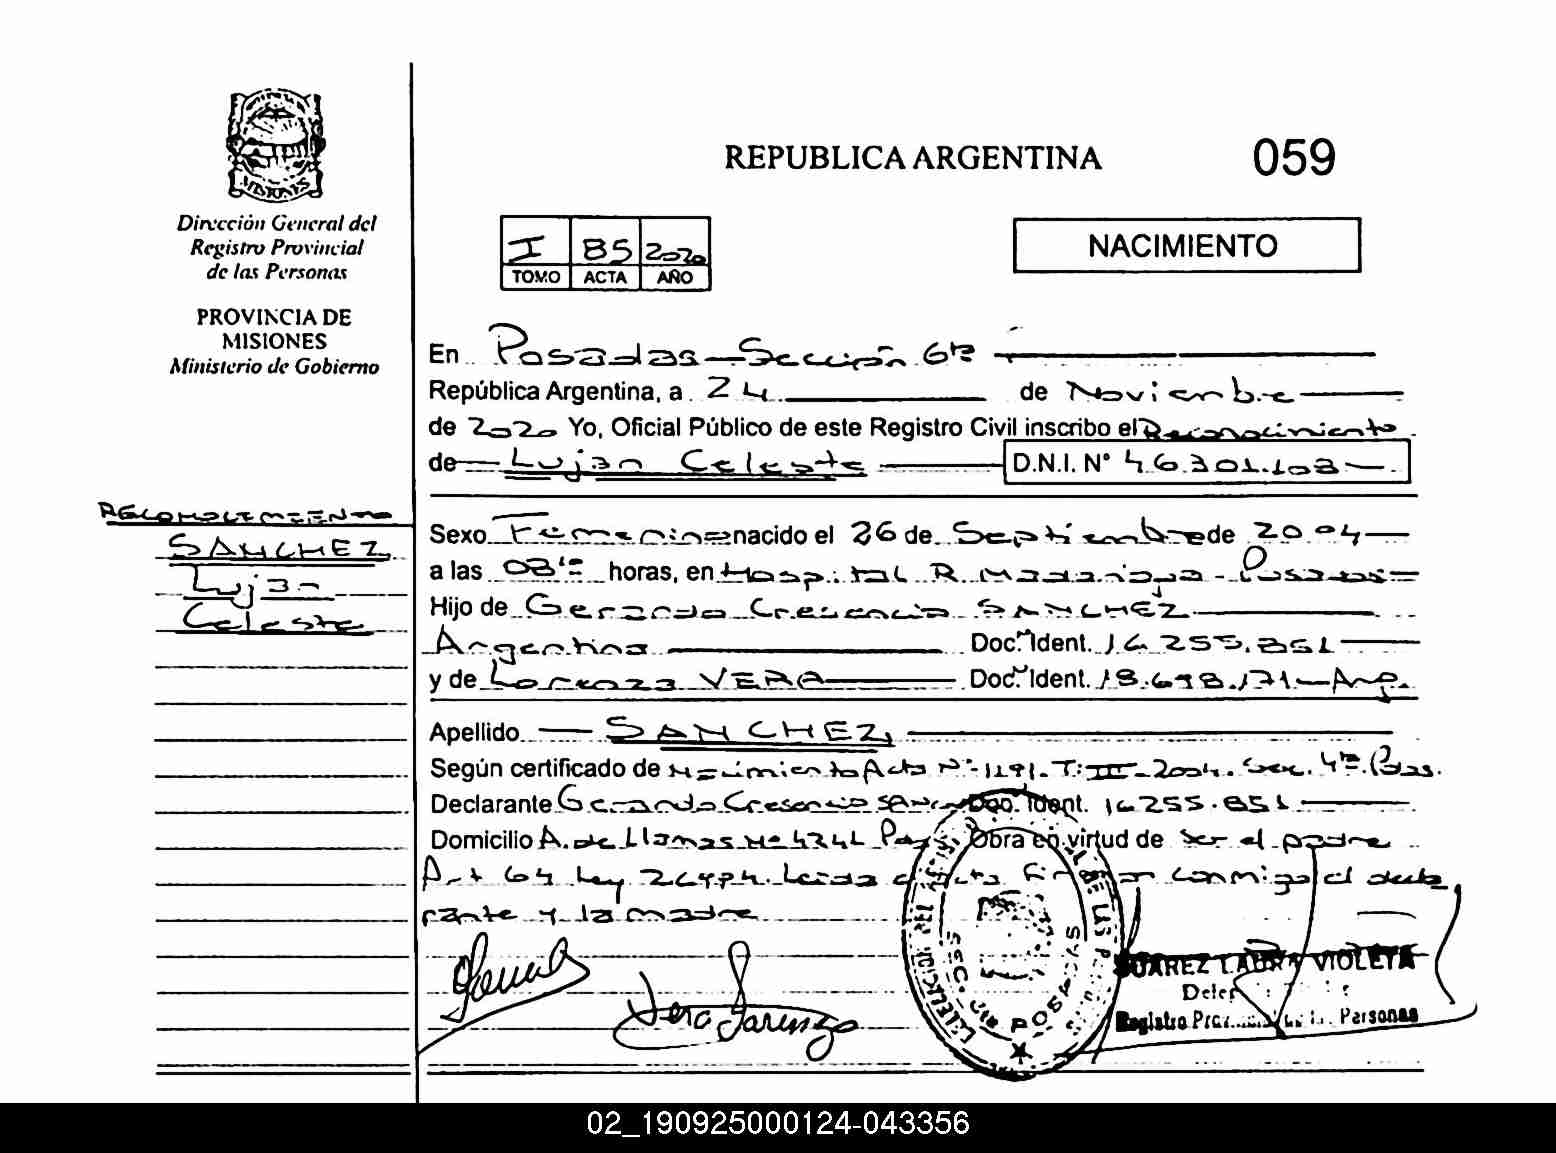 MISIONES
Dirección General del
Registro Provincial
de las Personas
PROVINCIA DE
MISIONES
Ministerio de Gobierno
REPUBLICA ARGENTINA 059
I 85 2020
TOMO ACTA AÑO
NACIMIENTO
En Posadas Sección 6ta
República Argentina, a 24 de Noviembre
de 2020 Yo, Oficial Público de este Registro Civil inscribo el Reconocimiento
de Lujan Celeste D.N.I. N° 46.301.103
RECONOCIMIENTO
SANCHEZ
Lujan
Celeste
Sexo Femenino nacido el 26 de Septiembre de 2004
a las horas, en Hospital R. Madariaga - Posadas
Hijo de Gerardo Crescencio SANCHEZ
Argentina Doc. Ident. 16.255.851
y de Lorenza VERA Doc. Ident. 18.698.171 Arg.
Apellido SANCHEZ
Según certificado de Nacimiento Acta N° 1291. T: III - 2004. Sec. 4ta. Pdas.
Declarante Gerardo Crescencio Doc. Ident. 16255.851
Domicilio A. de Llamas N° 4244 Obra en virtud de ser el padre
Art 64 Ley Leida el acta conmigo el decla
rante y la madre
Vera Lorenza
SEC. 6ta POSADAS
SUAREZ LAURA VIOLETA
Registro de las Personas
02_190925000124-043356